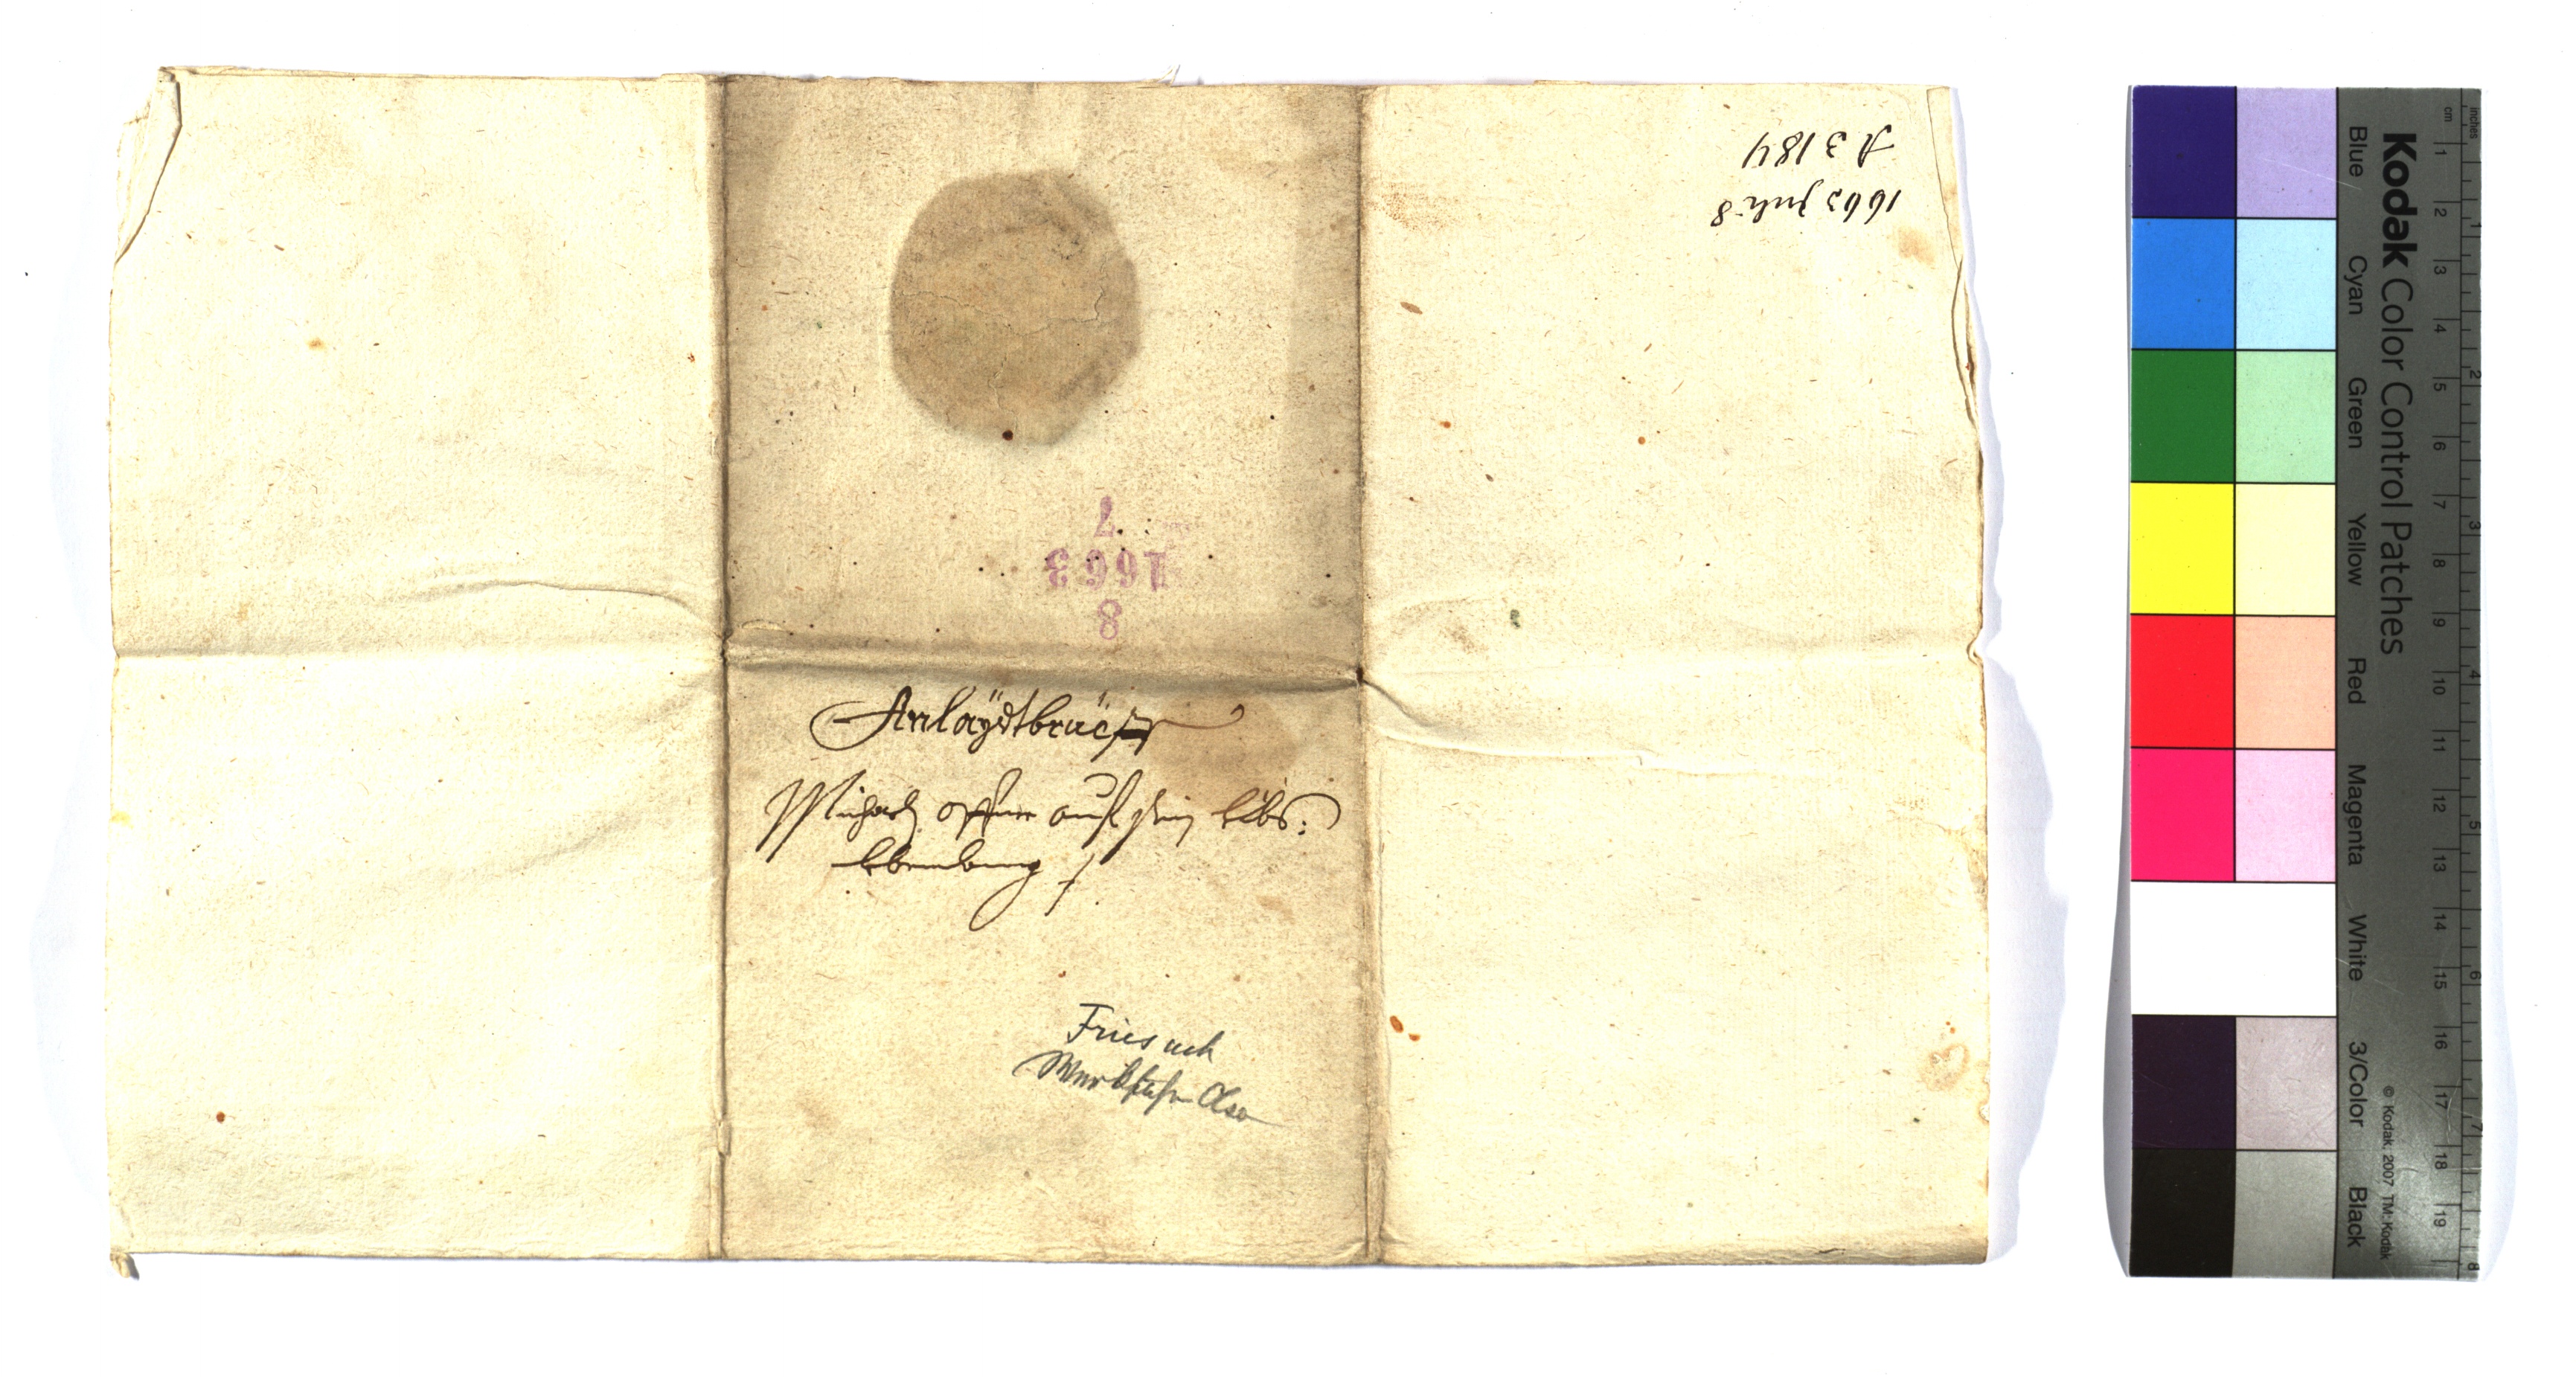 A 3184
1663 Juli 8
7
1663
8
Anlaÿdtbrüeff
Michael auf sein Leibs:
Lebenlang
Friesach
Kodak Color Control Patches
Blue Cyan Green Yellow Red Magenta White 3/Color Black
© Kodak, 2007 TM: Kodak
inches 1 2 3 4 5 6 7 8
cm 1 2 3 4 5 6 7 8 9 10 11 12 13 14 15 16 17 18 19